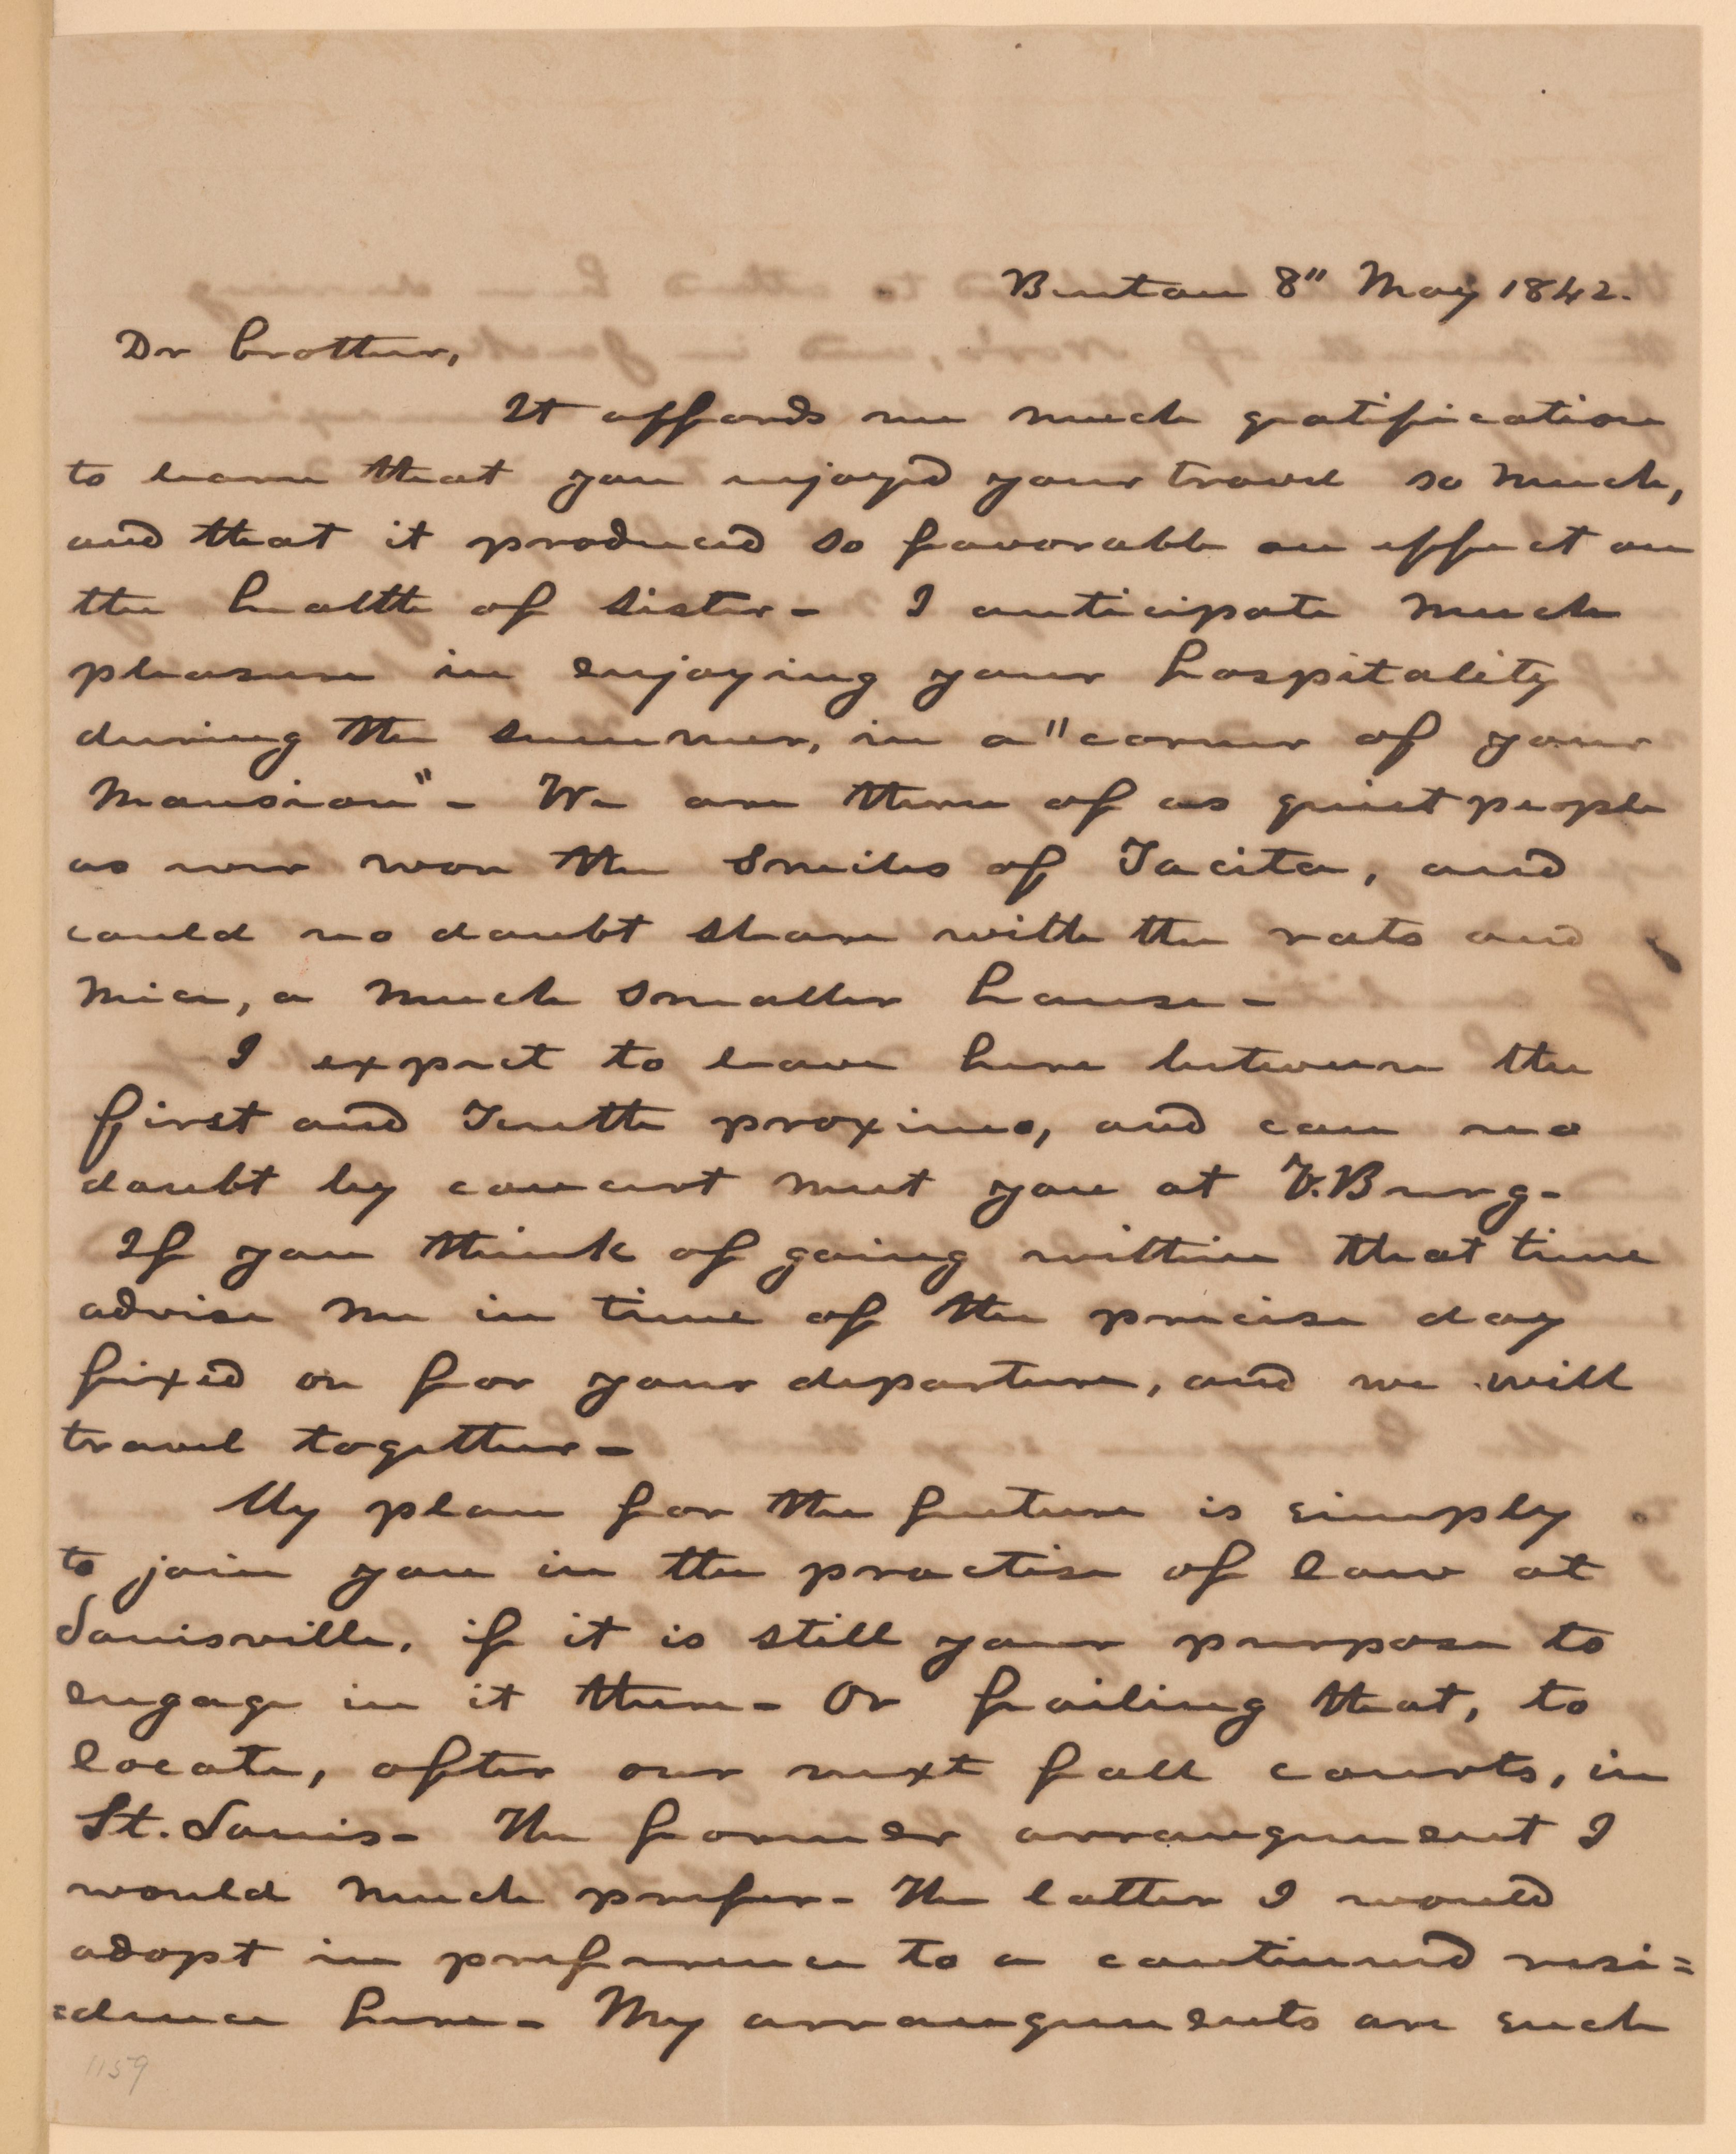 Benton 8" May 1842.
Dr brother,
It affords me much gratification
to learn that you enjoyed your travel so much,
and that it produced so favorable an effect on
the health of sister - I anticipate much
pleasure in enjoying your hospitality
during the summer, in a "corner of your
mansion" - We are three of as quiet people
as ever won the smiles of Tacita, and
could no doubt share with the rats and
mice, a much smaller house -
I expect to leave here between the
first and Tenth proximo, and can no
doubt by concert meet you at V.Burg -
If you think of going within that time
advise me in time of the precise day
fixed on for your departure, and we will
travel together -
My plan for the future is simply
to join you in the practise of law at
Louisville, if it is still your purpose to
engage in it there - Or failing that, to
locate, after our next fall courts, in
St. Louis - The former arrangement I
would much prefer - The latter I would
adopt in preference to a continued resi=
=dence here - My arrangements are such
1159